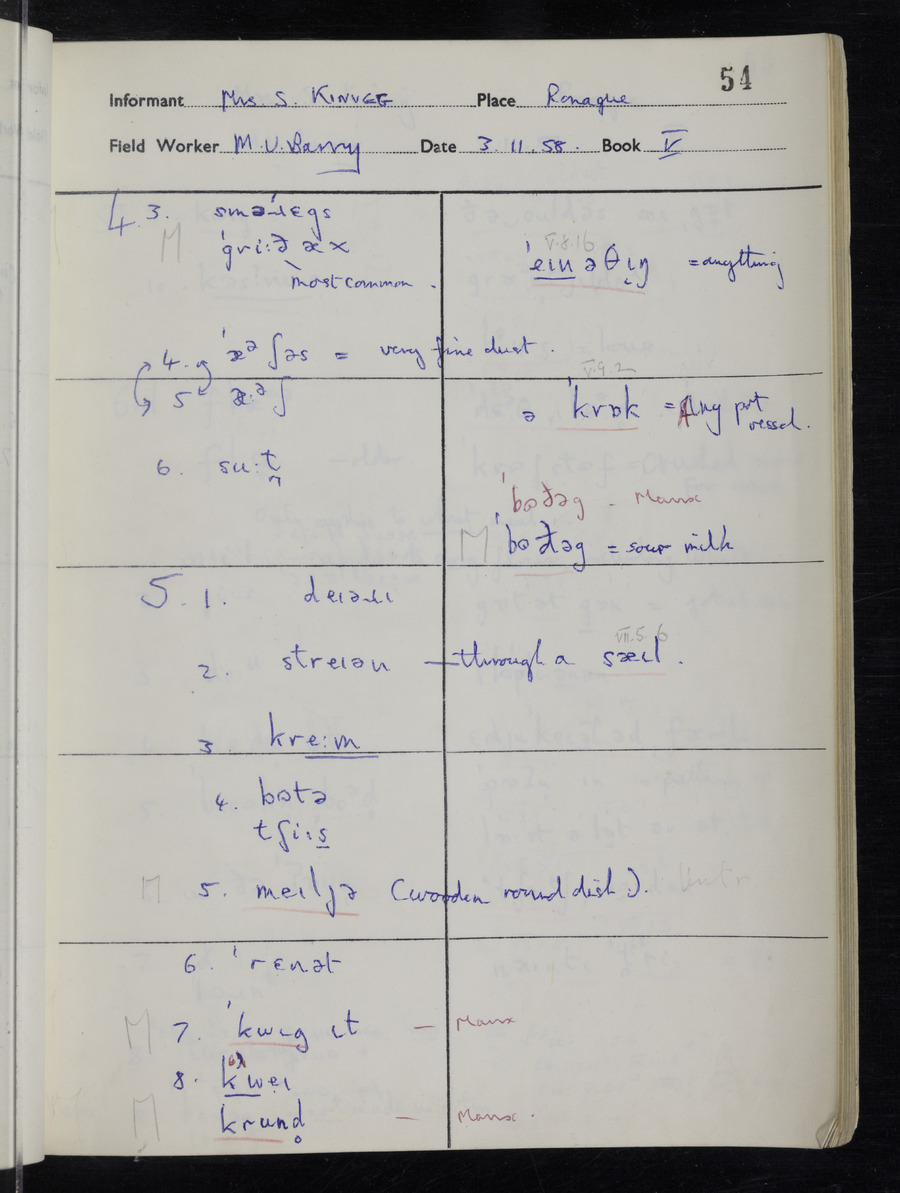 54
Informant Mrs. S. KINVIG Place Ronague
Field Worker M.V. Barry Date 3.11.58. Book V
4. 3. smɔ:legs
M 'gri:ʒ æx
most common.
V.8.16
'ein ə θɩŋ = anything
4. 'æᵊʃəs = very fine dust.
5 æ:ᵊʃ
V.9.2
ə 'krɒk = Any pot vessel.
6. su:t̪
'boðəg - Manx
M 'boðəg = sour milk
5. 1. deɩəɹɩ
VII.5.6
2. streɩən — through a sæɩl.
3 kre:m
4. bɵtə
tʃi:s
M 5. meɩljə (wooden round dish).
6. 'rɛnət
M 7. 'kwɩg ɩt — Manx
8. kweɩ
M krund̥ — Manx.